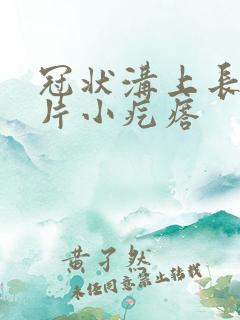 冠状溝上長
片小疙瘩
黄子然
未经同意禁止转载